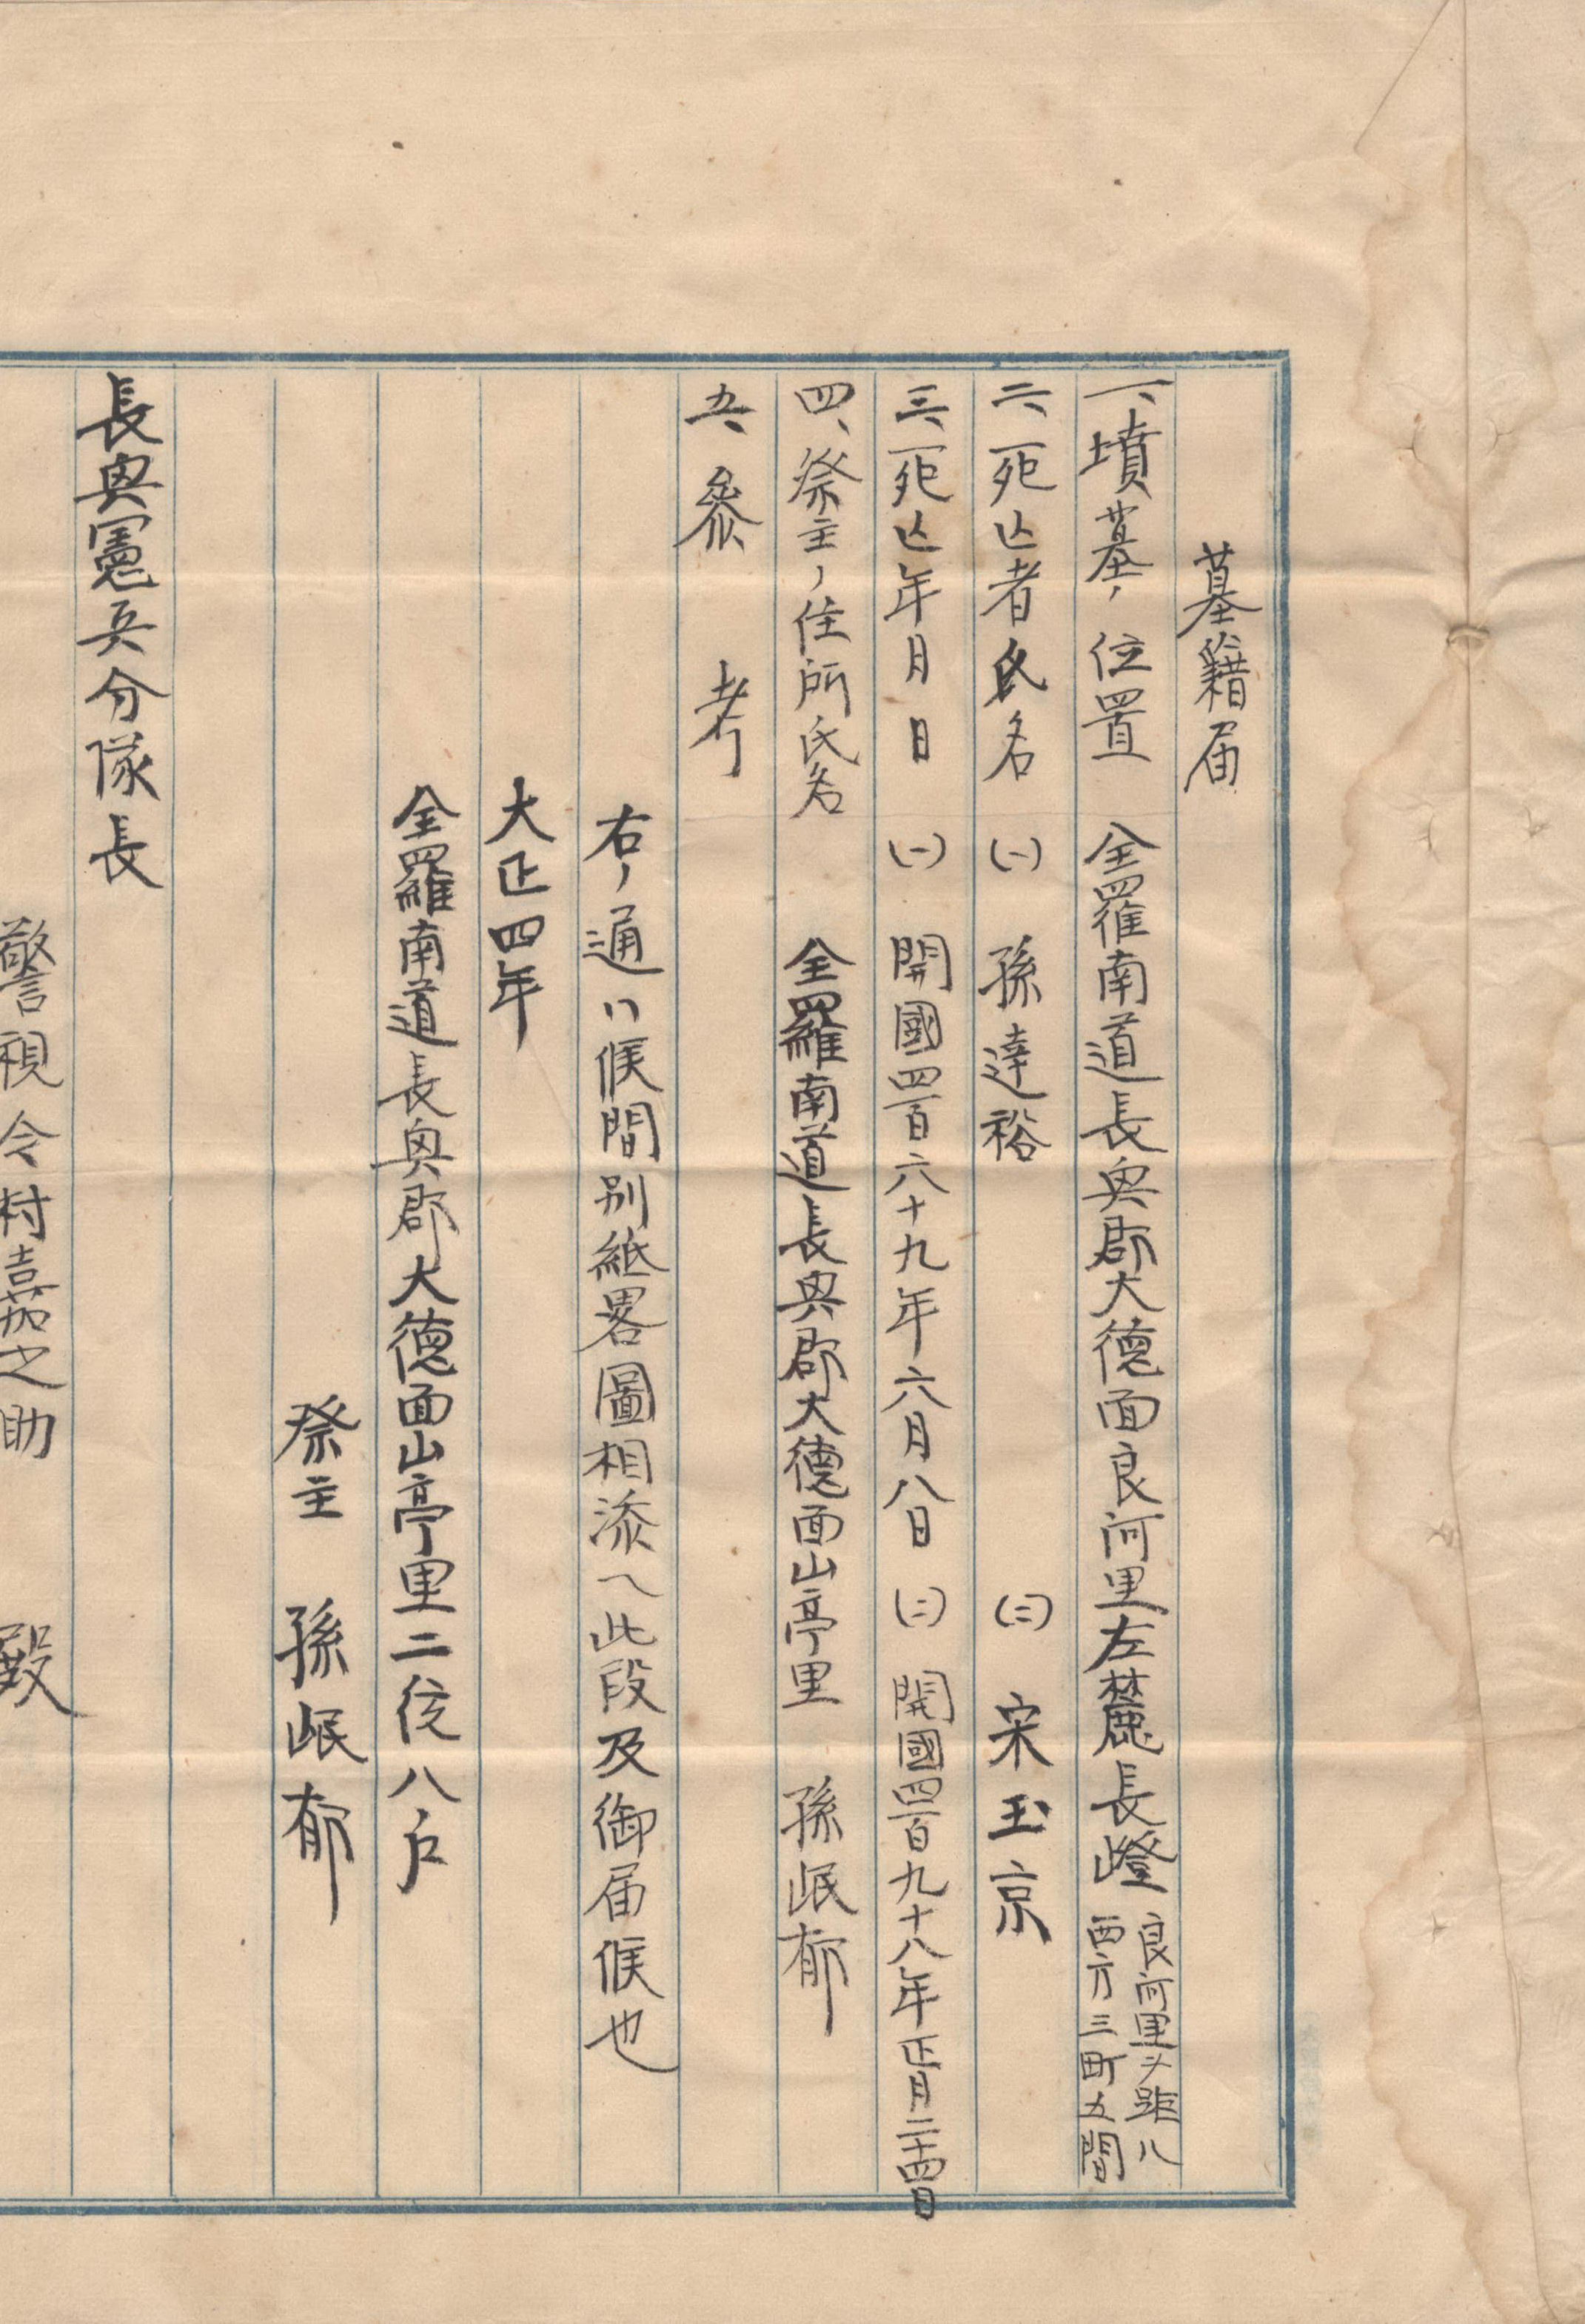 墓籍届
一、墳墓ノ位置 全羅南道長興郡大德面良河里左麓長嶝 良河里ヲ距ル
西方三町五間
二、死亡者氏名 (一) 孫達裕 (二) 宋玉京
三、死亡年月日 (一) 開國四百六十九年六月八日 (二) 開國四百九十八年正月二十四日
四、祭主ノ住所氏名 全羅南道長興郡大德面山亭里 孫岷郁
五、參考
右ノ通リ候間別紙畧圖相添ヘ此段及御届候也
大正四年
全羅南道長興郡大德面山亭里二統八戶
祭主 孫岷郁
長興憲兵分隊長
警視 令村嘉之助 殿